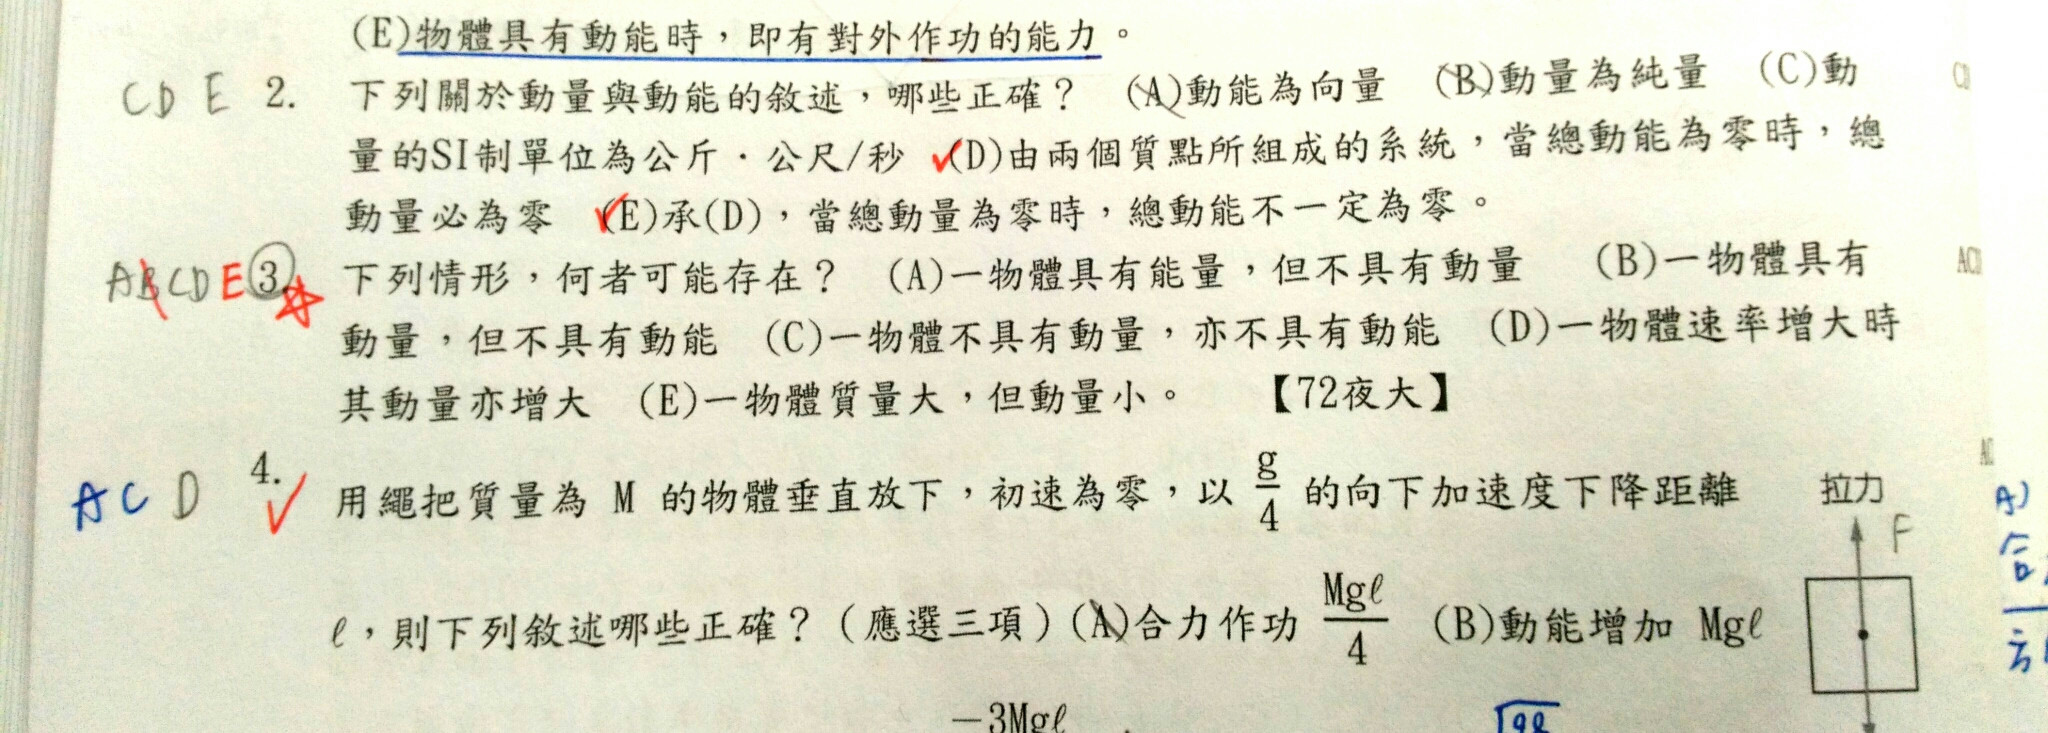 (E)物體具有動能時，即有對外作功的能力。
CDE 2. 下列關於動量與動能的敘述，哪些正確？ (A)動能為向量 (B)動量為純量 (C)動
量的SI制單位為公斤．公尺/秒 (D)由兩個質點所組成的系統，當總動能為零時，總
動量必為零 (E)承(D)，當總動量為零時，總動能不一定為零。
ABCDE 3. 下列情形，何者可能存在？ (A)一物體具有能量，但不具有動量 (B)一物體具有
動量，但不具有動能 (C)一物體不具有動量，亦不具有動能 (D)一物體速率增大時
其動量亦增大 (E)一物體質量大，但動量小。 【72夜大】
ACD 4. 用繩把質量為 M 的物體垂直放下，初速為零，以 g/4 的向下加速度下降距離
拉力
F
ℓ，則下列敘述哪些正確？（應選三項）(A)合力作功 Mgℓ/4 (B)動能增加 Mgℓ
-3Mgℓ
A)
合